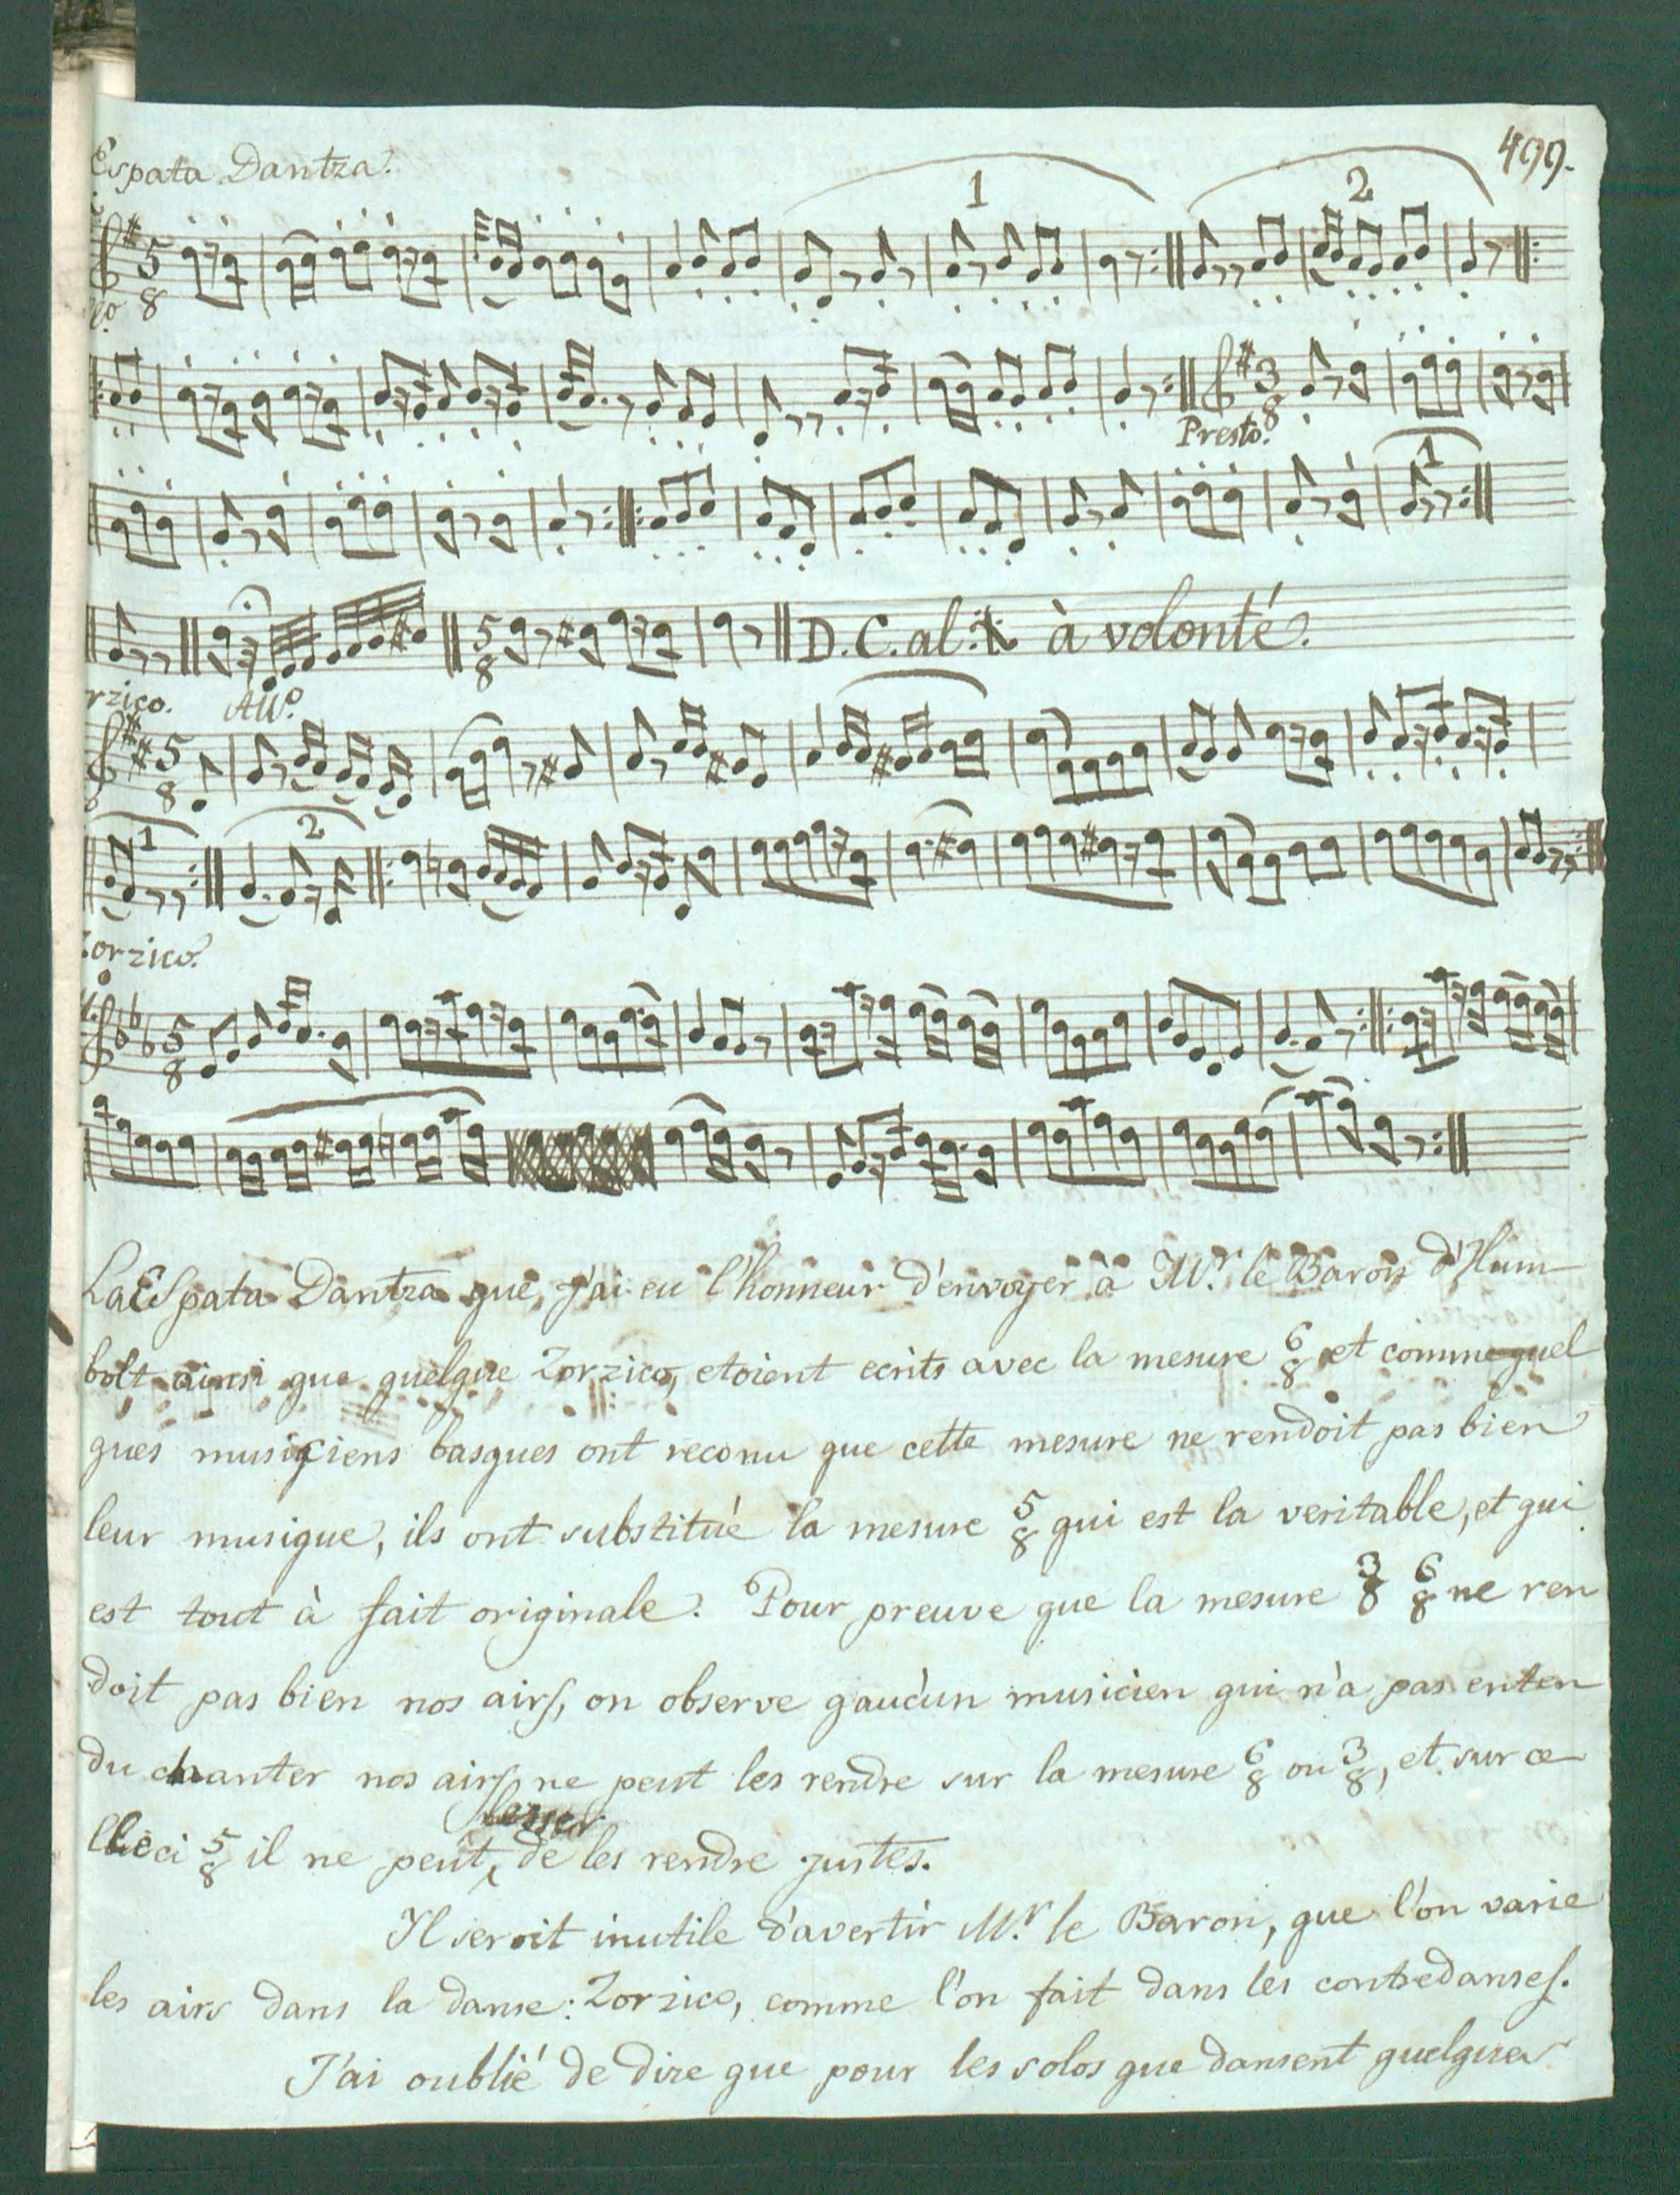 499.
Espata Dantza.
1
2
5
8
llo.
3
8
Presto.
1
5
8
D.C. al. à volonté.
rzico. All.o
5
8
1
2
Zorzico.
5
8
La Espata Dantza que, j'ai eu l'honneur d'envoyer à M.r le Baron d'Hum
bolt ainsi que quelque Zorzico, etoient ecrits avec la mesure 6/8 et comme quel
ques musiciens basques ont reconu que cette mesure ne rendoit pas bien
leur musique, ils ont substitué la mesure 5/8 qui est la veritable, et qui
est tout à fait originale. Pour preuve que la mesure 3/8 6/8 ne ren
doit pas bien nos airs, on observe qaucun musicien qui n'a pas enten
du chanter nos airs ne peut les rendre sur la mesure 6/8 ou 3/8, et sur ce
lleci 5/8 il ne peut, de les rendre justes.
Il seroit inutile d'avertir M.r le Baron, que l'on varie
les airs dans la danse: Zorzico, comme l'on fait dans les contredanses.
J'ai oublié de dire que pour les solos que dansent quelques